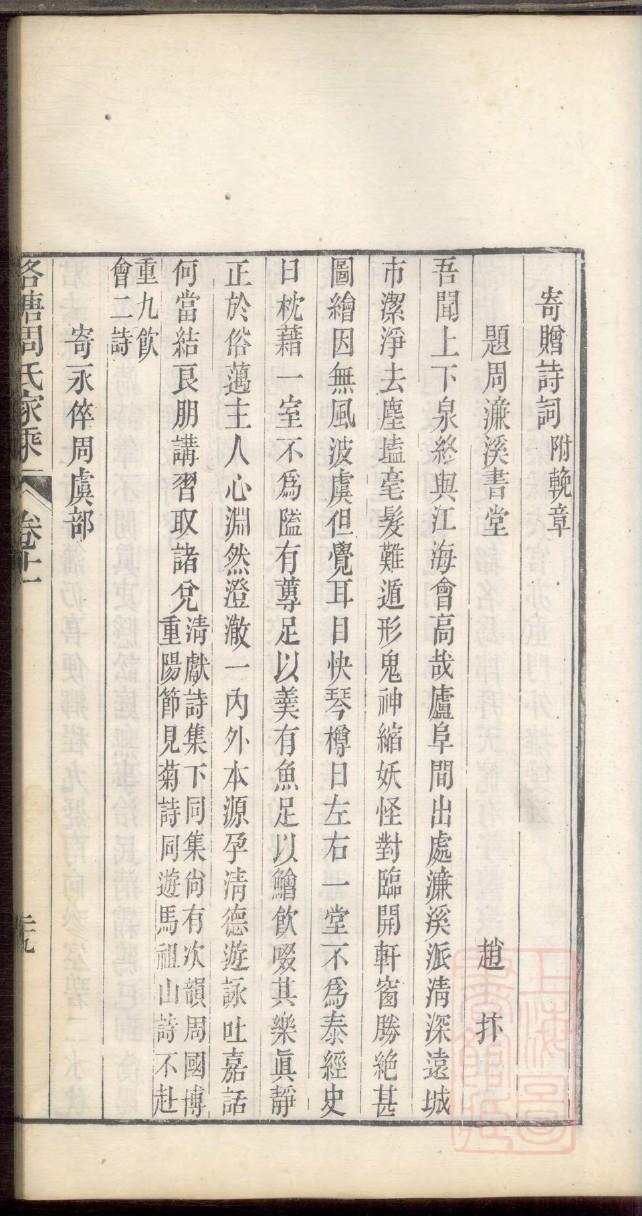 寄贈詩詞附輓章
題周濂溪書堂 趙抃
吾聞上下泉終與江海會高哉廬阜間出處濂溪派清深遠城
市潔淨去塵壒毫髮難遁形鬼神縮妖怪對臨開軒窗勝絕甚
圖繪因無風波虞但覺耳目快琴樽日左右一堂不為泰經史
日枕藉一室不為隘有蓴足以羹有魚足以鱠飲啜其樂真靜
正於俗邁主人心淵然澄澈一內外本源孕清德遊詠吐嘉話
何當結良朋講習取諸兌清獻詩集下同集尚有次韻周國博
重陽節見菊詩同遊馬祖山詩不赴
重九飲
會二詩
寄永倅周虞部
周氏家乘 卷十一
上海圖書館藏